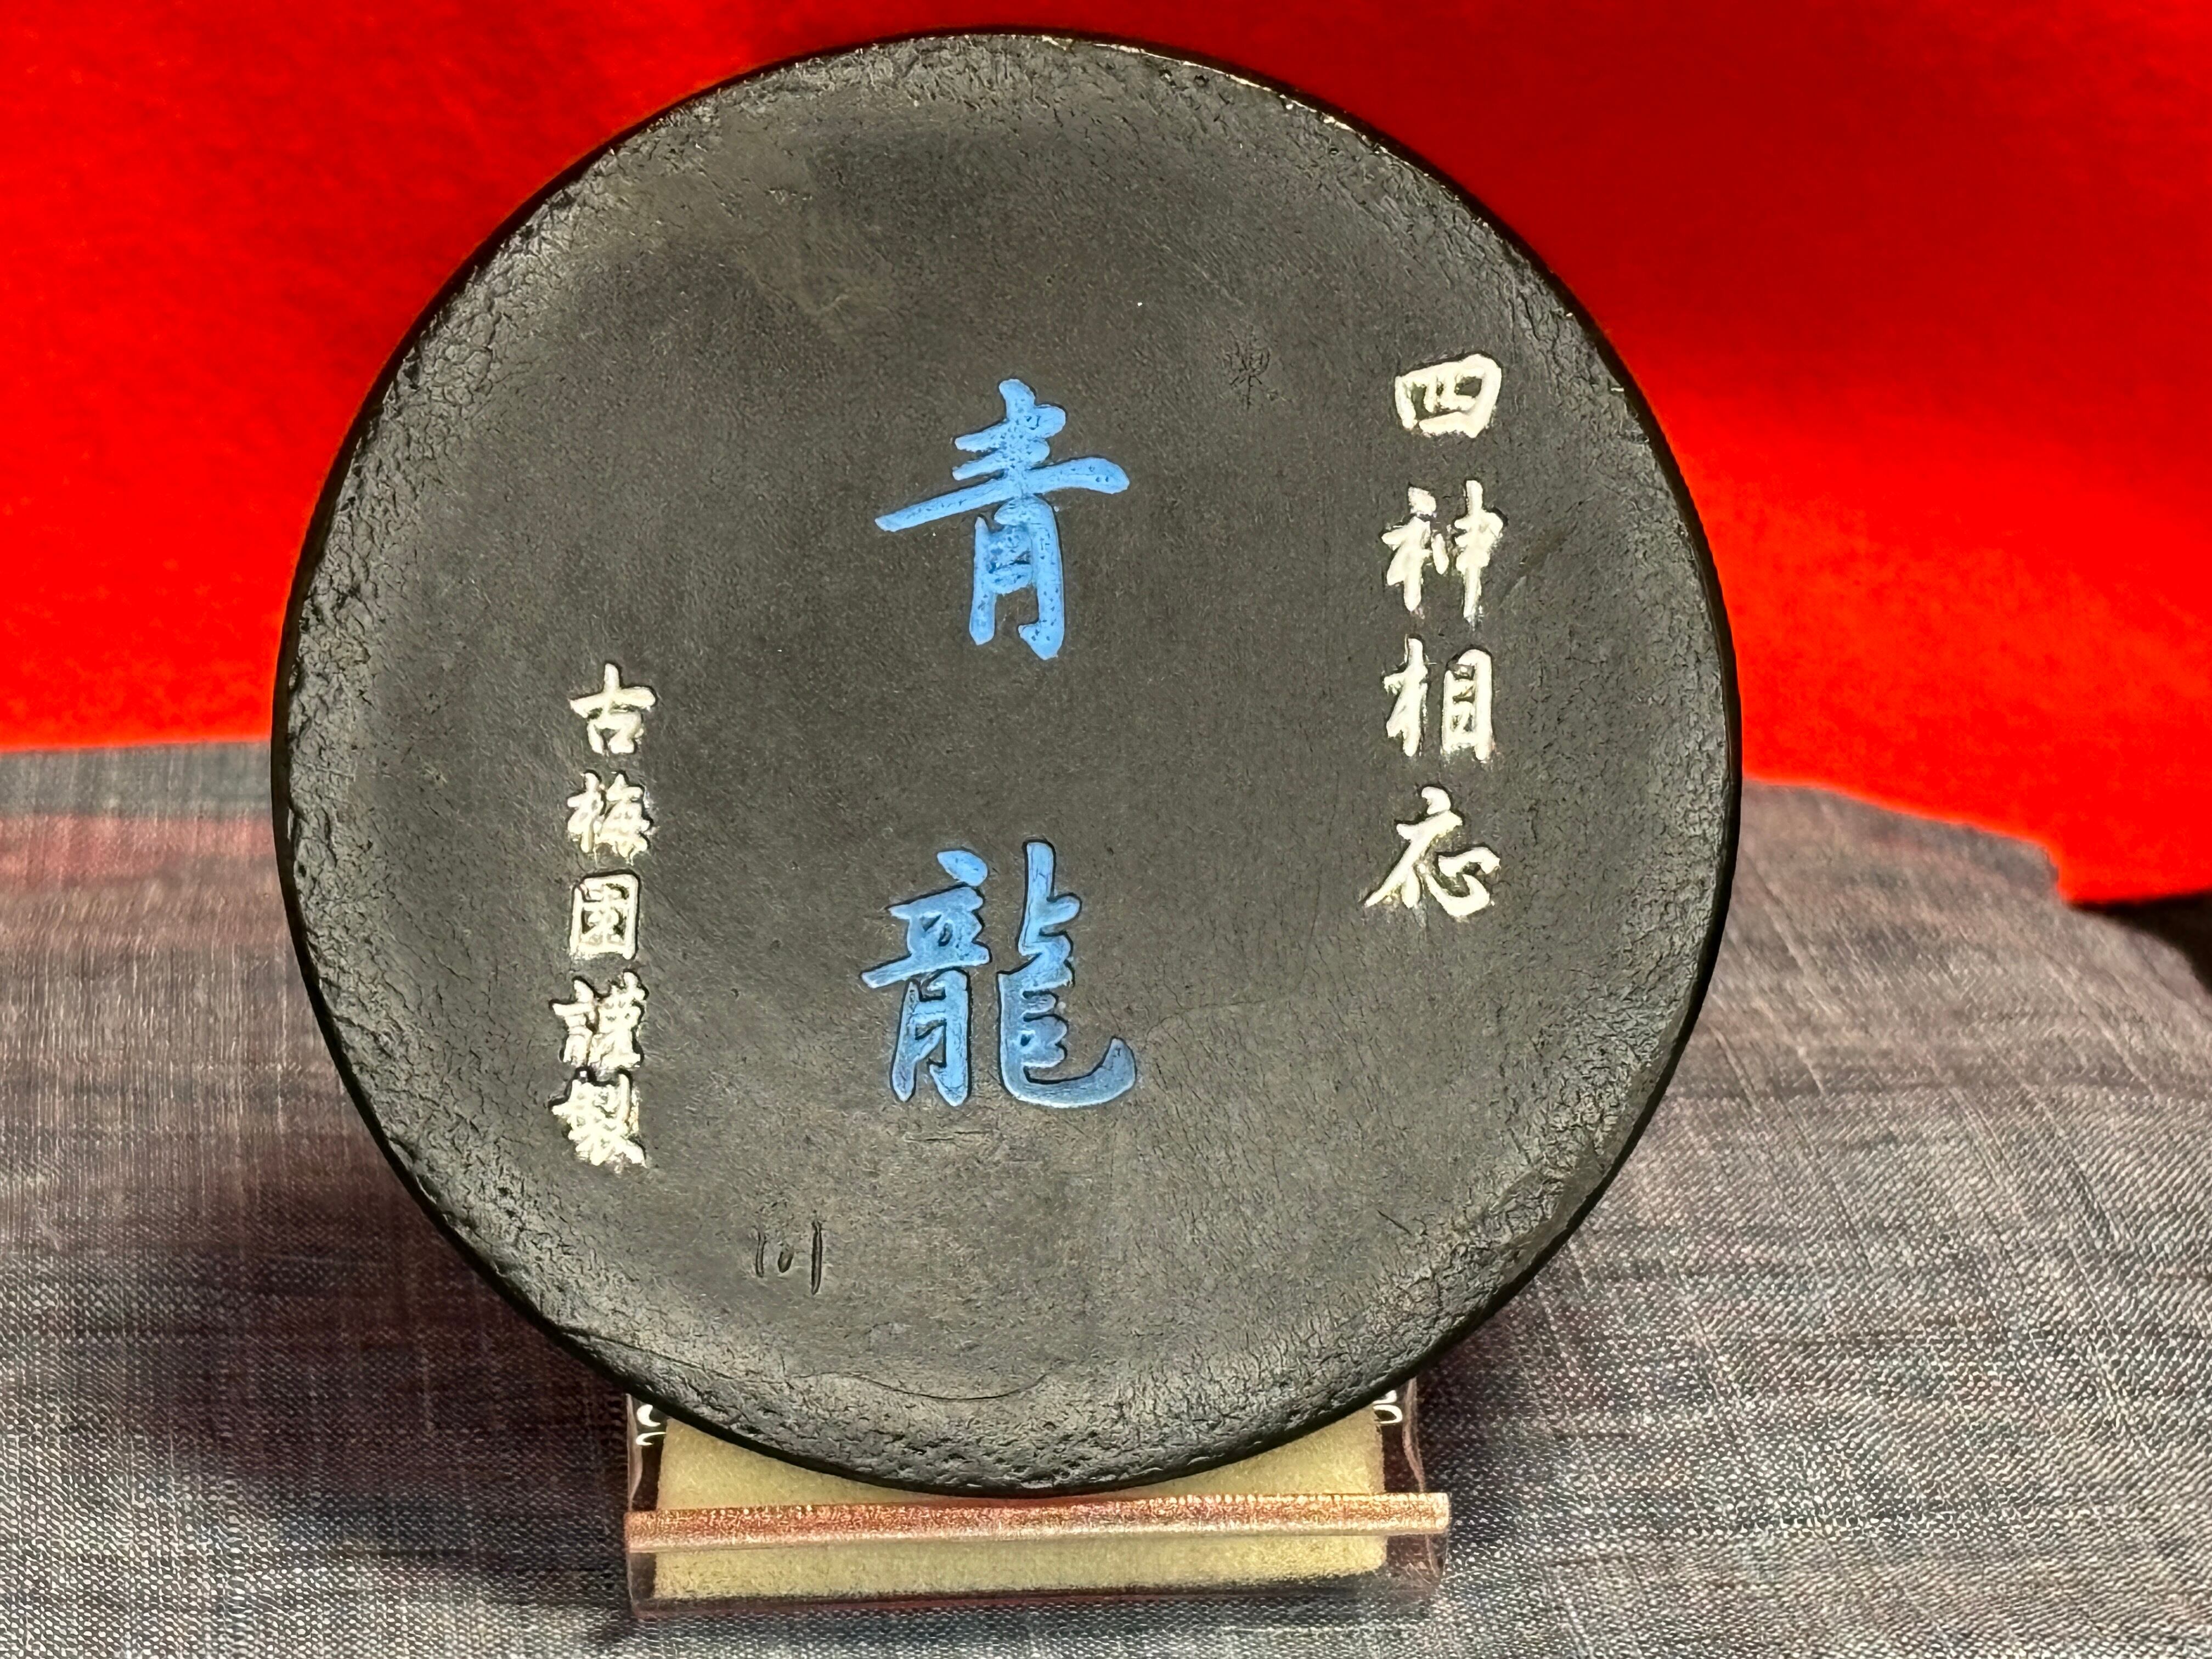 四神相応
青龍
古梅園謹製